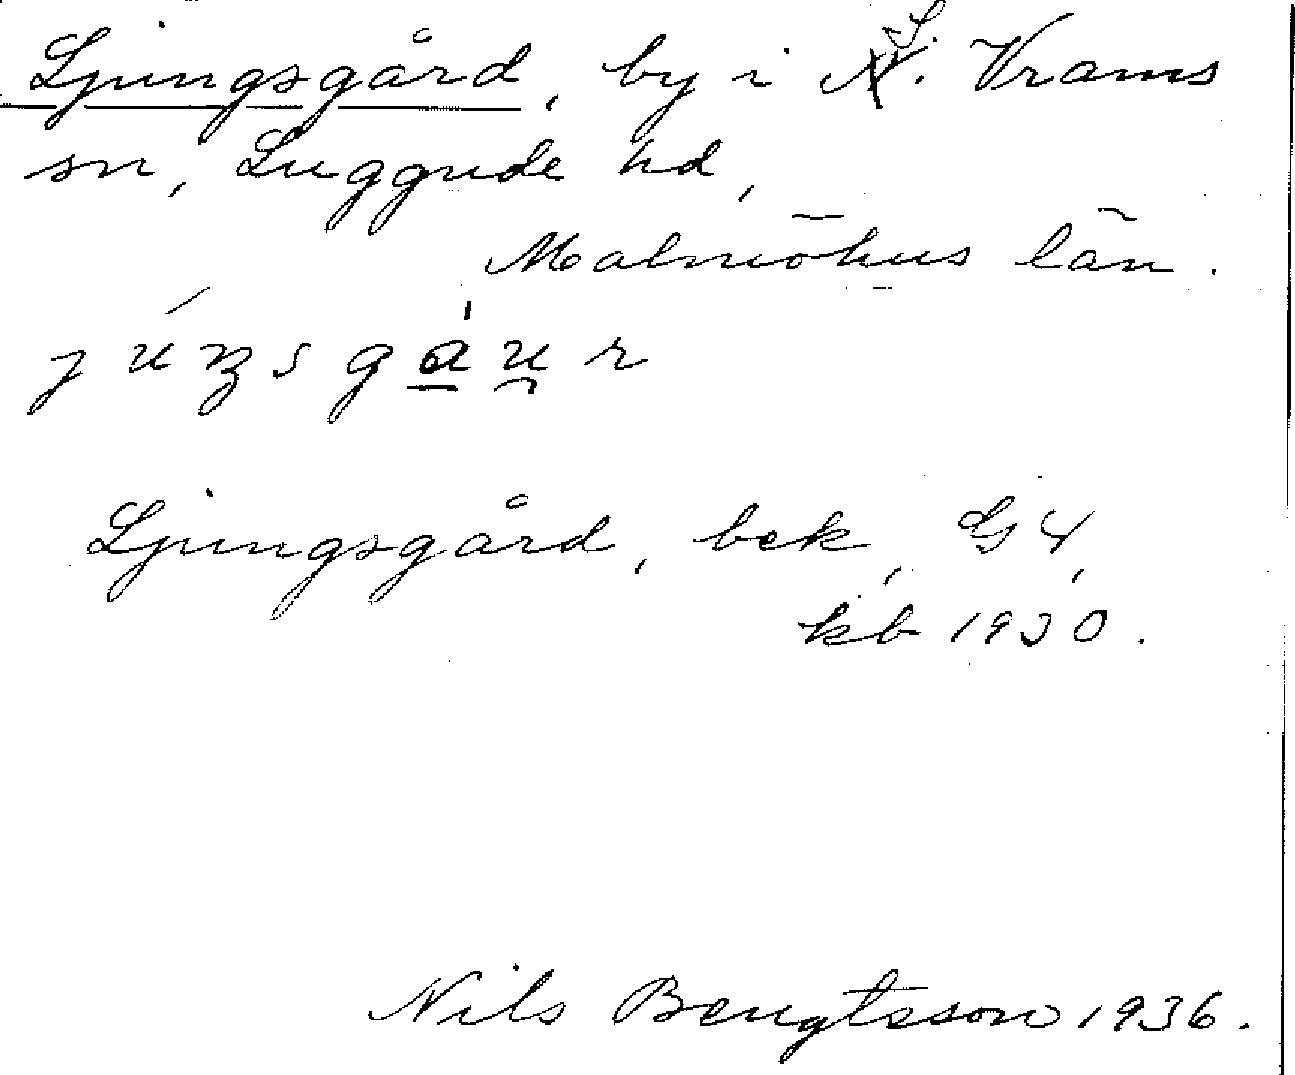 Ljungsgård, by i S. Vrams
sn, Luggude hd,
Malmöhus län.
Ljungsgård, bek, G4,
kb 1930.
Nils Bengtsson 1936.